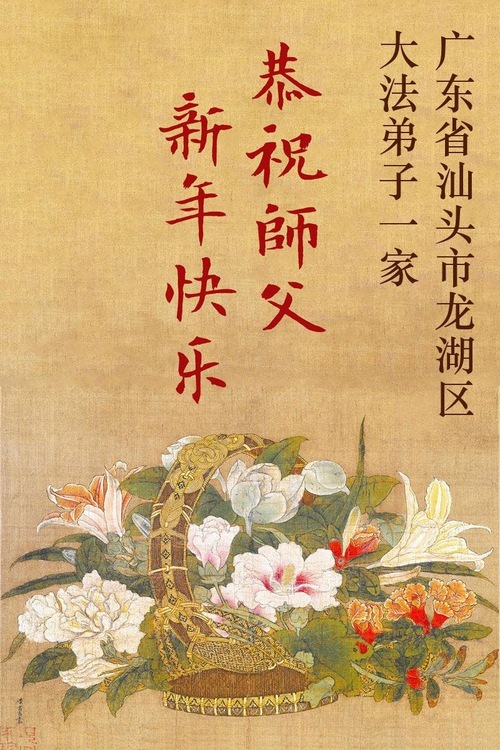 广东省汕头市龙湖区
大法弟子一家
恭祝師父
新年快乐